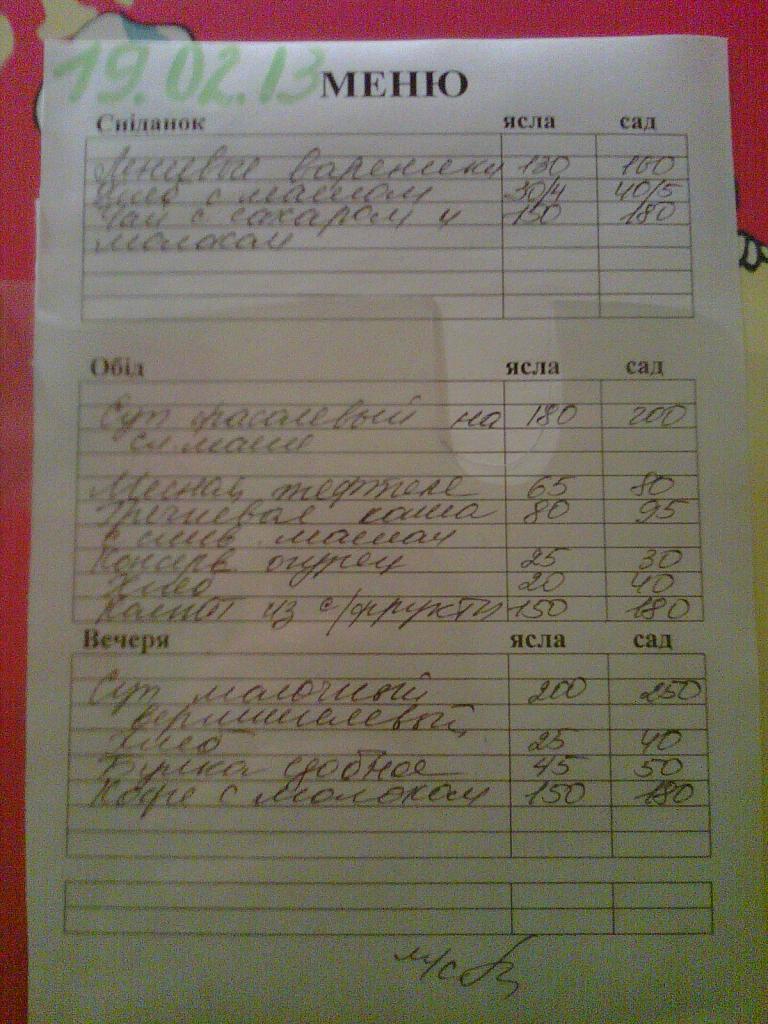 19.02.13 МЕНЮ
Сніданок ясла сад
Ленивые вареники 130 160
Хлеб с маслом 30/4 40/5
Чай с сахаром и 150 180
молоком
Обід ясла сад
Суп фасолевый на 180 200
сл. масле
Мясная тефтеле 65 80
Гречневая каша 80 95
с слив. маслом
Консерв. огурец 25 30
Хлеб 20 40
Компот из с/фрукты 150 180
Вечеря ясла сад
Суп молочный 200 250
вермишелевый
Хлеб 25 40
Булка сдобное 45 50
Кофе с молоком 150 180
м/с